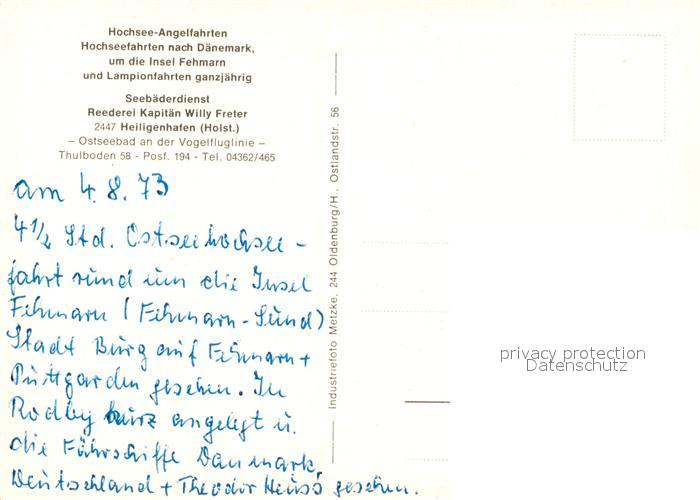 Hochsee-Angelfahrten
Hochseefahrten nach Dänemark,
um die Insel Fehmarn
und Lampionfahrten ganzjährig
Seebäderdienst
Reederei Kapitän Willy Freter
2447 Heiligenhafen (Holst.)
– Ostseebad an der Vogelfluglinie –
Thulboden 58 - Posf. 194 - Tel. 04362/465
am 4. 8. 73
4 1/2 Std. Ostseehochsee-
fahrt rund um die Insel
Fehmarn (Fehmarn-Sund)
Stadt Burg auf Fehmarn +
Puttgarden gesehen. In
Rødby kurz angelegt u.
die Fährschiffe Danmark,
Deutschland + Theodor Heuss gesehen.
Industriefoto Metzke, 244 Oldenburg/H., Ostlandstr. 56
privacy protection
Datenschutz